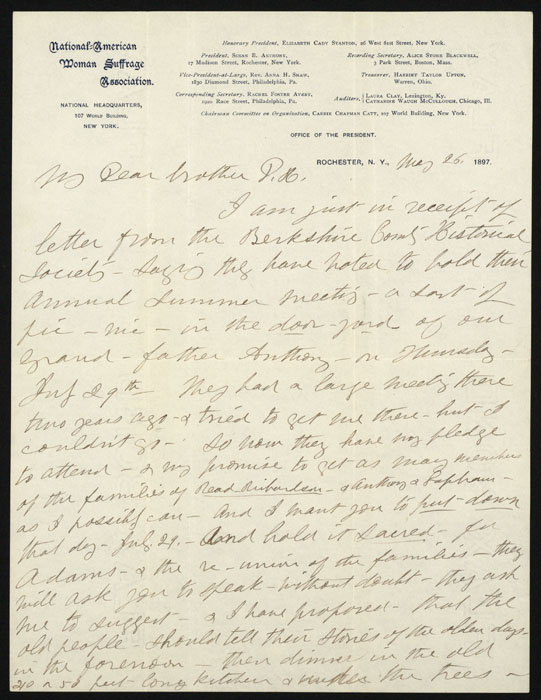 National-American
Woman Suffrage
Association.
NATIONAL HEADQUARTERS,
107 WORLD BUILDING,
NEW YORK.
Honorary President, ELIZABETH CADY STANTON, 26 West 61st Street, New York.
President, SUSAN B. ANTHONY,
17 Madison Street, Rochester, New York.
Vice-President-at-Large, REV. ANNA H. SHAW,
1830 Diamond Street, Philadelphia, Pa.
Corresponding Secretary, RACHEL FOSTER AVERY,
1920 Race Street, Philadelphia, Pa.
Recording Secretary, ALICE STONE BLACKWELL,
3 Park Street, Boston, Mass.
Treasurer, HARRIET TAYLOR UPTON,
Warren, Ohio.
Auditors, LAURA CLAY, Lexington, Ky.
CATHARINE WAUGH McCULLOUGH, Chicago, Ill.
Chairman Committee on Organization, CARRIE CHAPMAN CATT, 107 World Building, New York.
OFFICE OF THE PRESIDENT.
ROCHESTER, N. Y., May 26. 1897.
My Dear brother D.R.
I am just in receipt of
letter from the Berkshire County Historical
Society - saying they have voted to hold their
annual summer meeting - a sort of
pic - nic - in the door-yard of our
grand - father Anthony - on Thursday -
July 29th They had a large meeting there
two years ago - & tried to get me there - but I
couldn't go - So now they have my pledge
to attend - & my promise to get as many members
of the families of Read Richardson - & Anthony & Lapham -
as I possibly can - And I want you to put - down
that day - July 29. - And hold it sacred - for
Adams - & the re - union of the families - they
will ask you to speak - without doubt - they ask
me to suggest - & I have proposed - that the
old people - should tell their stories of the olden days -
in the forenoon - then dinner in the old
40 or 50 feet long kitchen & under the trees -